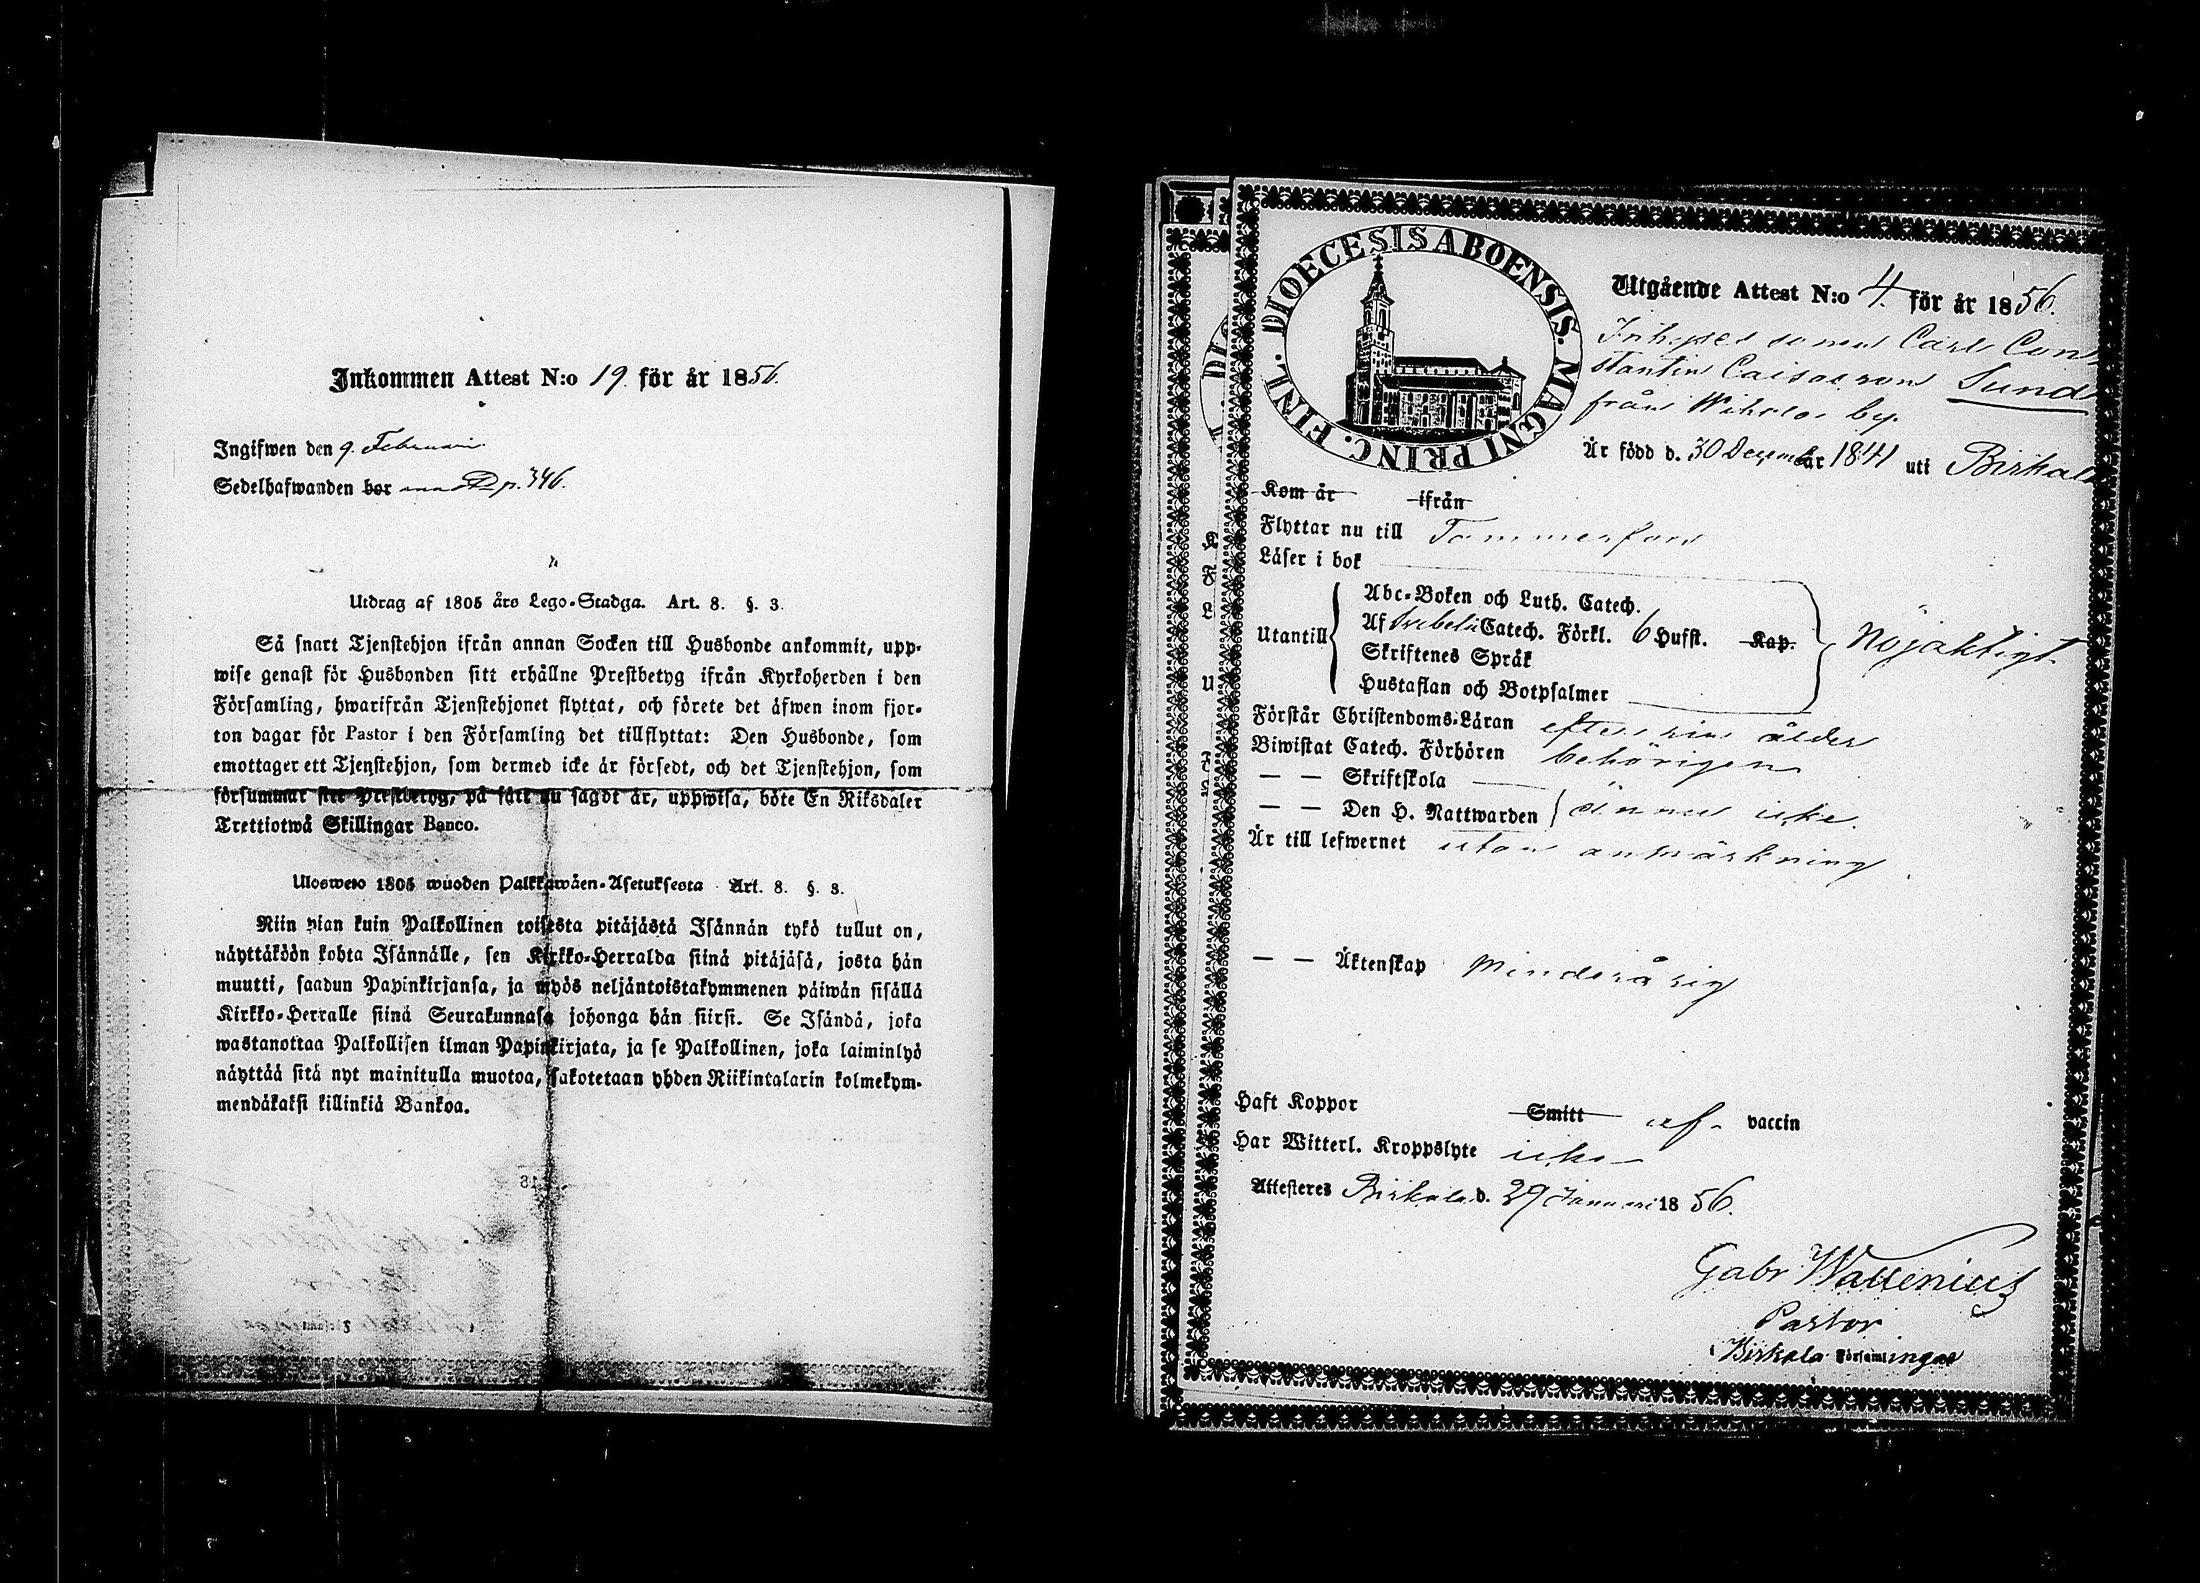 Inkommen Attest N:o 19. för år 1856.
Ingifwen den 9. Februari
Sedelhafwanden bor p. 346.
Utdrag af 1805 års Lego-Stadga. Art. 8. §. 3.
Så snart Tjenstehjon ifrån annan Socken till Husbonde ankommit, upp-
wise genast för Husbonden sitt erhållne Prestbetyg ifrån Kyrkoherden i den
Församling, hwarifrån Tjenstehjonet flyttat, och förete det äfwen inom fjor-
ton dagar för Pastor i den Församling det tillflyttat: Den Husbonde, som
emottager ett Tjenstehjon, som dermed icke är försedt, och det Tjenstehjon, som
försummar sitt Prestbetyg, på sätt nu sagdt är, uppwisa, böte En Riksdaler
Trettiotwå Skillingar Banco.
Ulosweto 1805 wuoden Palkkawäen-Asetuksesta Art. 8. §. 3.
Niin pian kuin Palkollinen toisesta pitäjästä Isännän tykö tullut on,
näyttäköön kohta Isännälle, sen Kirkko-Herralda siinä pitäjäsä, josta hän
muutti, saadun Papinkirjansa, ja myös neljäntoistakymmenen päiwän sisällä
Kirkko-Herralle siinä Seurakunnasa johonga hän siirsi. Se Isändä, joka
wastanottaa Palkollisen ilman Papinkirjata, ja se Palkollinen, joka laiminlyö
näyttää sitä nyt mainitulla muotoa, sakotetaan yhden Riikintalarin kolmekym-
mendäkaksi killinkiä Bankoa.
DIOECESIS ABOENSIS. MAGNI PRINC. FINL.
Utgående Attest N:o 4. för år 1856.
Inhyses sonen Carl Con
stantin Lund
från by.
Är född d. 30 Decemb år 1841 uti Birkala
Kom år ifrån
Flyttar nu till Tammerfors
Läser i bok
Abc-Boken och Luth. Catech.
Utantill Af Svebelii Catech. Förkl. 6 Hufst. Kap. Nöjaktigt.
Skriftenes Språk
Hustaflan och Botpsalmer
Förstår Christendoms-Läran efter sin ålder
Biwistat Catech. Förhören behörigen
— — Skriftskola
— — Den H. Nattwarden ännu icke.
Är till lefwernet utan anmärkning
— — Äktenskap Minderårig
Haft Koppor Smitt af vaccin
Har Witterl. Kroppslyte icke
Attesteres Birkala d. 29 Januari 1856.
Gabr Wallenius
Pastor
Birkala Församlingar